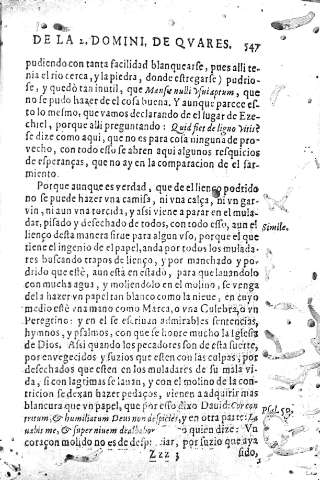 DE LA 2. DOMINI, DE QVARES. 547
pudiendo con tanta facilidad blanquearse, pues alli te-
nia el rio cerca, y la piedra, donde estregarse) pudrio-
se, y quedò tan inutil, que Mansit nulli vsui aptum, que
no se pudo hazer de el cosa buena. Y aunque parece es-
to lo mesmo, que vamos declarando de el lugar de Eze-
chiel, porque alli preguntando: Quid fiet de ligno Vitis?
se dize como aqui, que no es para cosa ninguna de pro-
vecho, con todo esso se abren aqui algunos resquicios
de esperanças, que no ay en la comparacion de el sar-
miento.
Porque aunque es verdad, que de el lienço podrido
no se puede hazer vna camisa, ni vna calça, ni vn gar-
vin, ni aun vna torcida, y assi viene a parar en el mula-
dar, pisado y desechado de todos, con todo esso, aun el
lienço desta manera sirue para algun vso, porque el que
tiene el ingenio de el papel, anda por todos los mulada-
res buscando trapos de lienço, y por manchado y po-
drido que estè, aun està en estado, para que lauandolo
con mucha agua, y moliendolo en el molino, se venga
de la hazer vn papel tan blanco como la nieue, en cuyo
medio estè vna mano como Marca, o vna Culebra, o vn
Peregrino: y en el se escriuan admirables sentencias,
hymnos, y psalmos, con que se honre mucho la Iglesia
de Dios. Assi quando los pecadores son de esta suerte,
por envegecidos y suzios que esten con las culpas; por
desechados que esten en los muladares de su mala vi-
da, si con lagrimas se lauan, y con el molino de la con-
tricion se dexan hazer pedaços, vienen a adquirir mas
blancura que vn papel, que por esso dixo Dauid: Cor con
tritum, & humiliatum Deus non despicies, y en otra parte: La
uabis me, & super niuem dealbabor quien dize: Vn
coraçon molido no es de despreciar, por suzio que aya
Zzz 3 sido,
Simile.
Psal. 50.